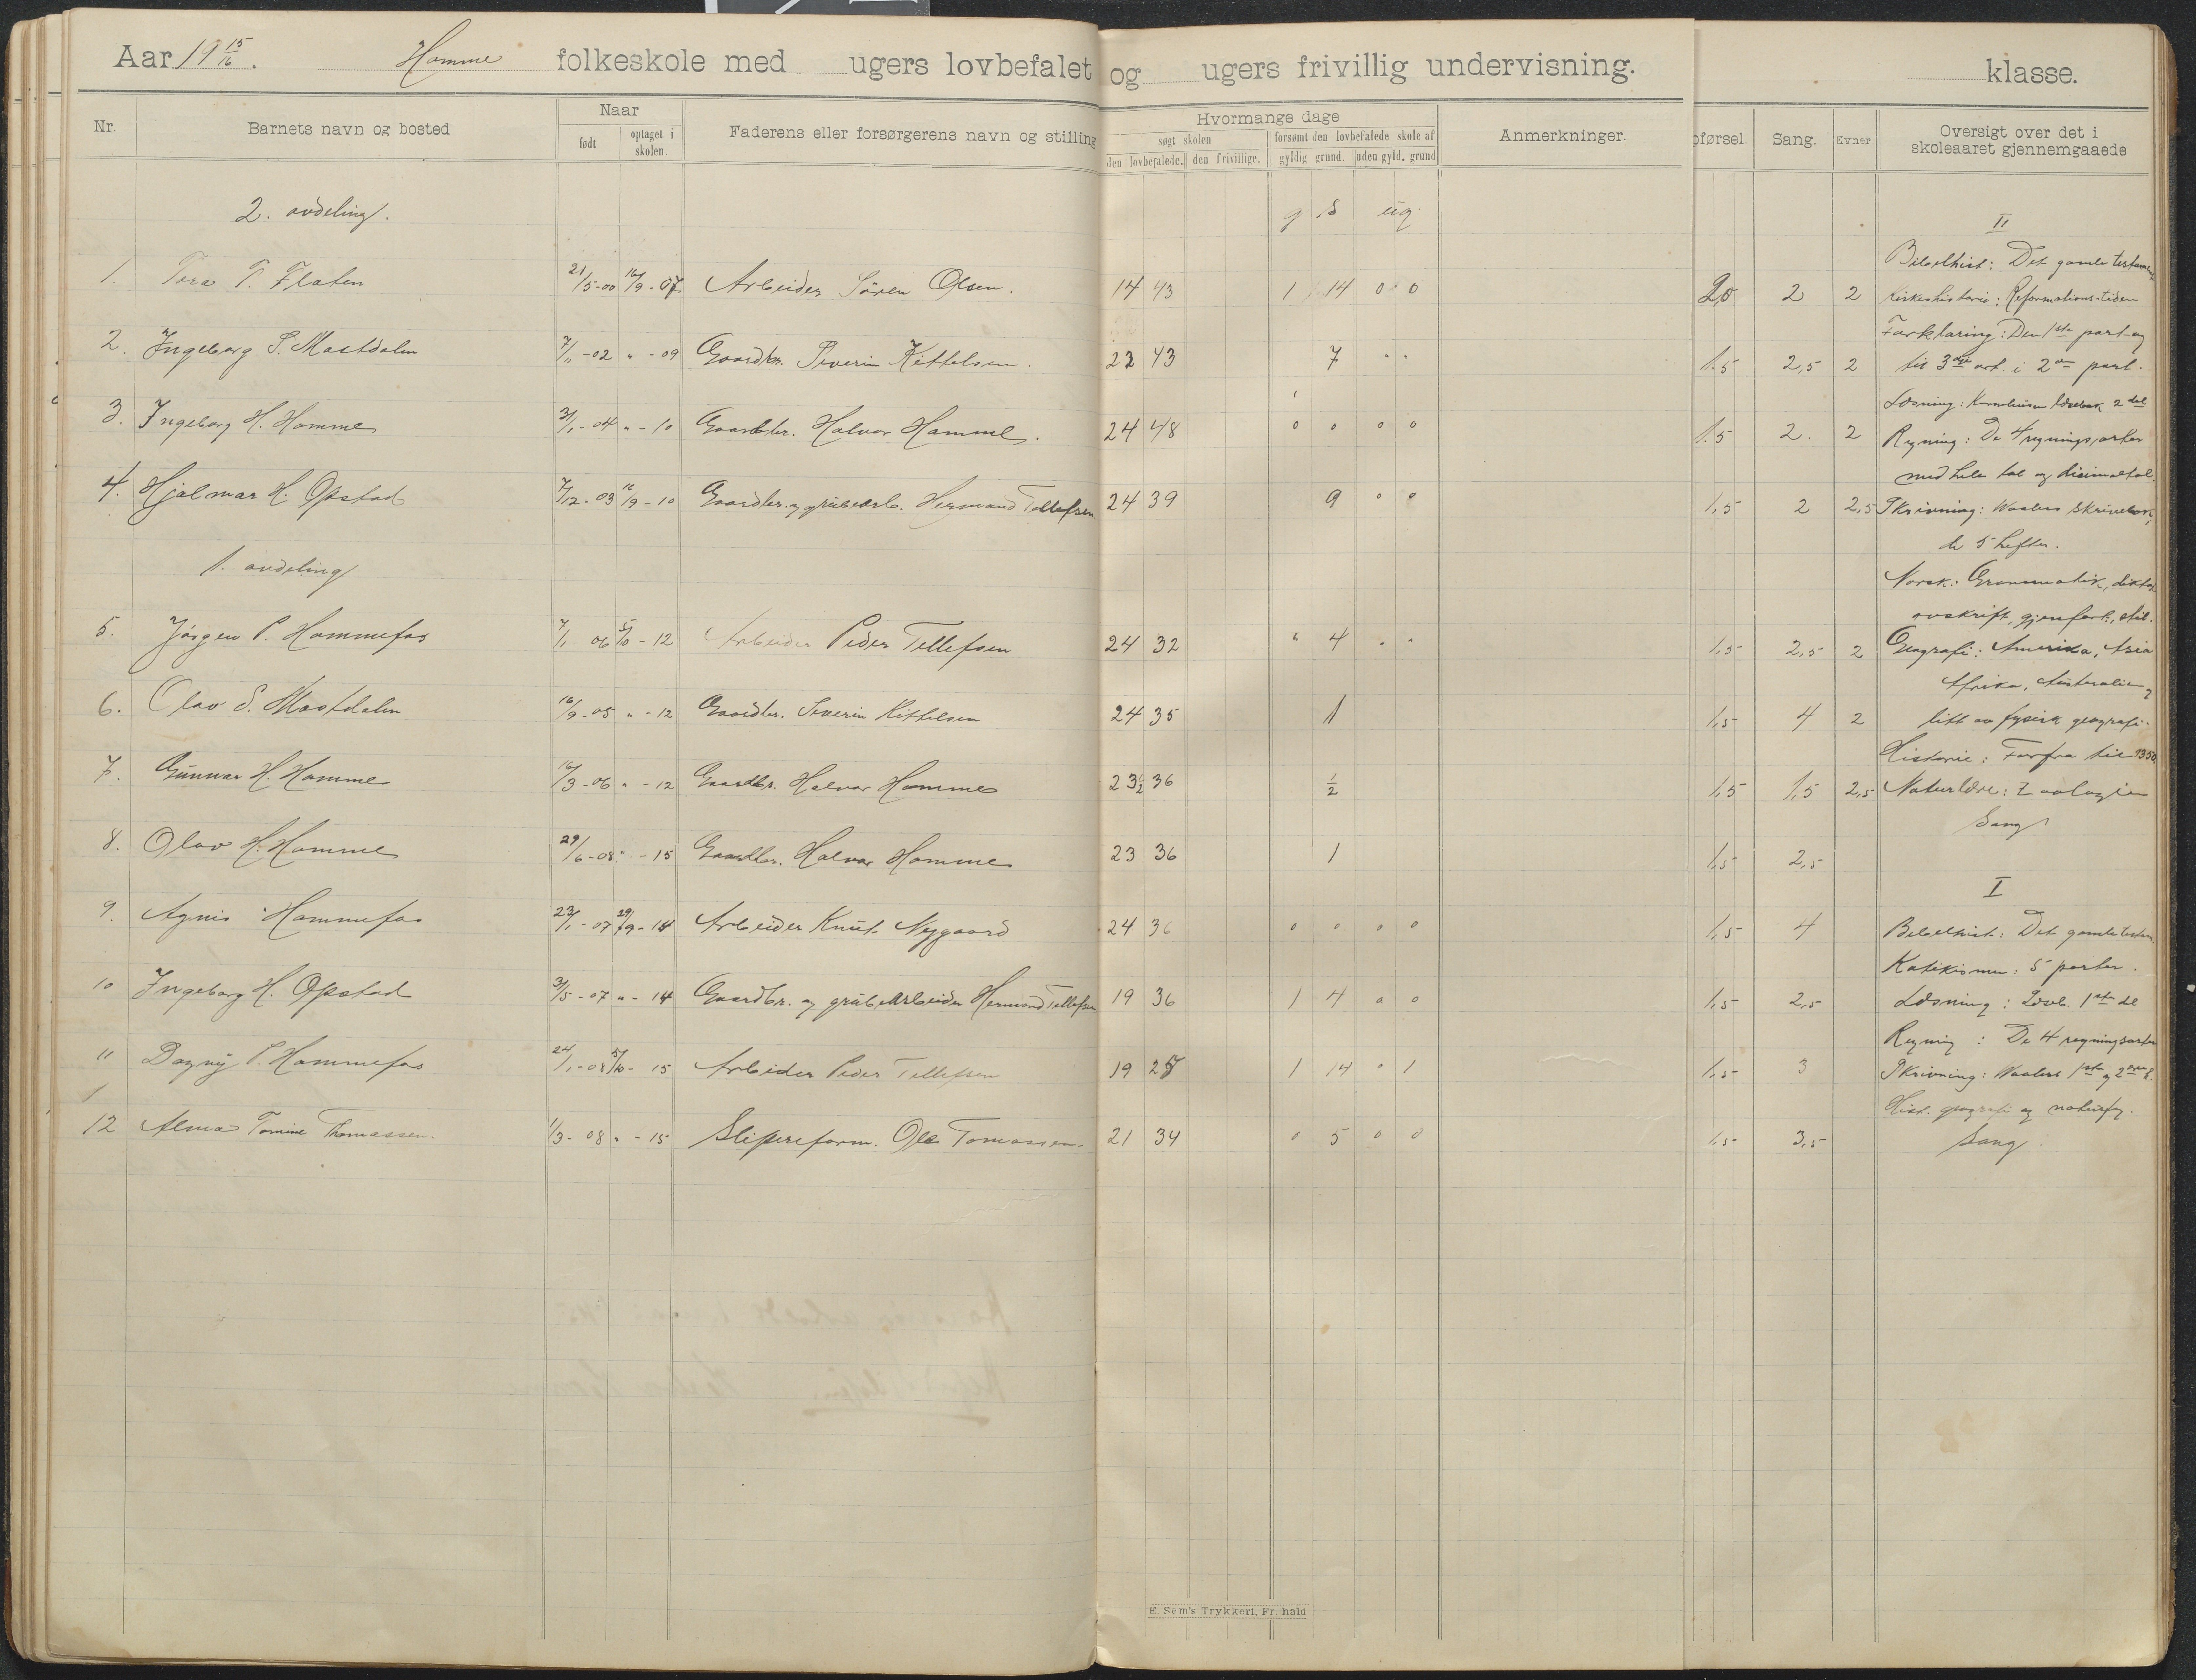 Aar 19 15/16. Homme folkeskole med ugers lovbefalet og ugers frivillig undervisning. klasse.
Nr. Barnets navn og bosted Naar født optaget i skolen. Faderens eller forsørgerens navn og stilling Hvormange dage søgt skolen den lovbefalede. den frivillige. forsømt den lovbefalede skole af gyldig grund. uden gyld. grund Anmerkninger. pførsel. Sang. Evner Oversigt over det i skoleaaret gjennemgaaede
2. avdeling. g s ug.
1. Tora T. Flaten 21/5-00 16/9-07 Arbeider Søren Olsen. 14 43 1 14 0 0 2,0 2 2
2. Ingeborg S. Mastdalen 7/11-02 " -09 Gaardbr. Severin Kittelsen. 23 43 7 " " 1.5 2,5 2
3. Ingeborg H. Homme 3/1-04 " -10 Gaardbr. Halvor Homme. 24 48 0 0 0 0 1.5 2. 2
4. Hjalmar H. Opstad 7/12-03 16/9-10 Gaardbr. og grubearb. Hermand Tellefsen 24 39 9 0 0 1,5 2 2,5
1. avdeling
5. Jørgen P. Hommefos 7/1-06 5/10-12 Arbeider Peder Tellefsen 24 32 " 4 " " 1,5 2,5 2
6. Olav S. Mastdalen 16/9-05 " -12 Gaardbr. Severin Kittelsen 24 35 1 1,5 4 2
7. Gunnar H. Homme 16/3-06 " -12 Gaardbr. Halvor Homme 23 1/2 36 1/2 1,5 1,5 2,5
8. Olav H. Homme 29/6-08 " -15 Gaardbr. Halvor Homme 23 36 1 1,5 2,5
9. Agnes Hommefos 23/1-07 29/9-14 Arbeider Knut Nygaard 24 36 0 0 0 0 1,5 4
10 Ingeborg H. Opstad 3/5-07 " -14 Gaardbr. og grubearbeider Hermand Tellefsen 19 36 1 4 0 0 1,5 2,5
11 Dagny P. Hommefos 24/1-08 5/10-15 Arbeider Peder Tellefsen 19 1 14 0 1 1,5 3
12 Alma Tomine Thomassen. 1/3-08 " -15 Slipereform. Ole Tomassen. 21 34 0 5 0 0 1,5 3,5
II
Bibelhist: Det gamle testamente
Kirkehistorie: Reformations-tiden
Forklaring: Den 1ste part og
til 3die art. i 2den part.
Læsning: læsebok 2 del
Regning: De 4 regningsarter
med hele tal og desimaltal.
Skrivning: Waalers Skrivebok,
de 5 hefter.
Norsk: Grammatik, diktat
avskrift, gjenfort., stil.
Geografi: Amerika, Asia
Afrika, Australien og
litt av fysisk geografi.
Historie: Forfra til 1350
Naturlære: Zoologien
Sang
I
Bibelhist: Det gamle testam.
Katekismen: 5 parter.
Læsning: Læseb. 1ste del
Regning: De 4 regningsarter
Skrivning: Waalers 1ste og 2den h.
Hist. geografi og naturfag.
Sang.
E. Sem's Trykkeri, Fr.hald